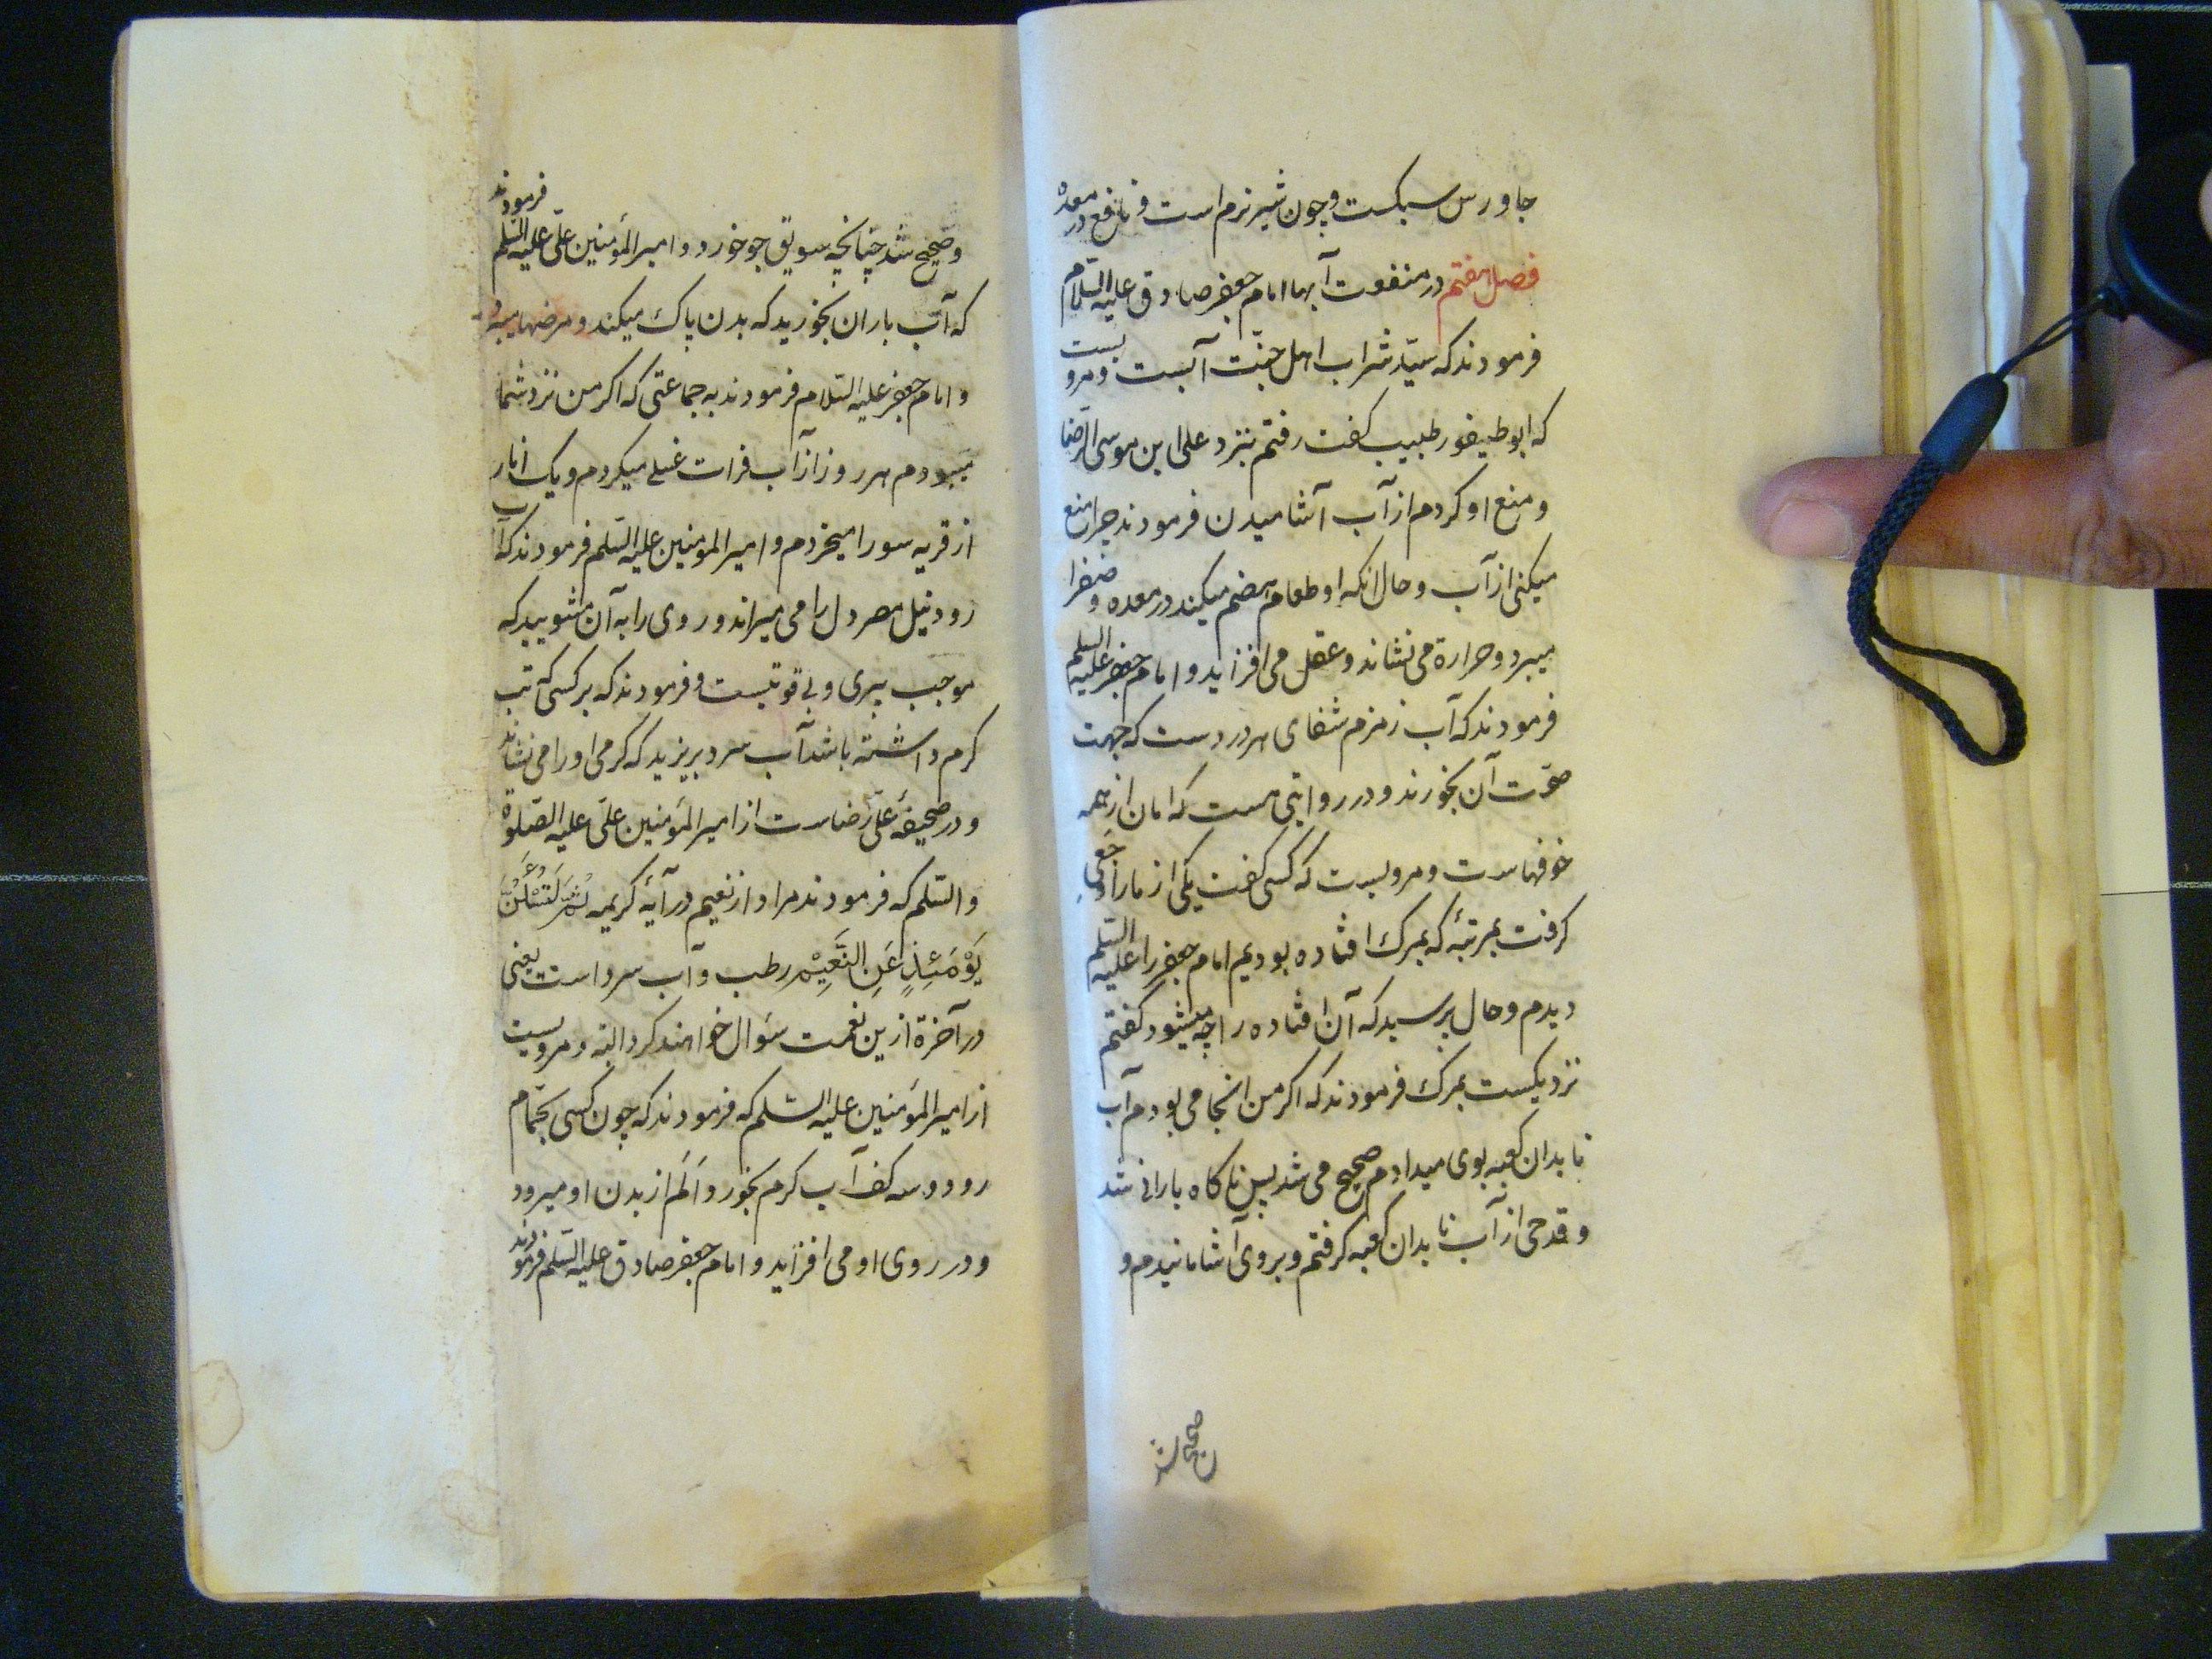 جاورس سبکست و چون شیر نرم است و نافع در معده
فصل هفتم در منفعت آبها امام جعفر صادق علیه السلام
فرمودند که سیّد شراب اهل جنّت آبست و مرویست
که ابو طیفور طبیب کفت رفتم بنزد علی ابن موسی الرّضا
و منع او کردم از آب آشامیدن فرمودند چرا منع
میکنی از آب و حال انکه او طعام هضم میکند در معده و صفرا
میبرد و حرارة می نشاند و عقل می افزاید و امام جعفر علیه السلم
فرمودند که آب زمزم شفای هر دردست که جهت
صحّت آن بخورند و در روایتی هست که امان از همه
خوفهاست و مرویست که کسی کفت یکی از ما را
کرفت بمرتبهٔ که بمرک افتاده بودیم امام جعفر را علیه السلم
دیدم و حال پرسید که آن افتاده را چه میشود کفتم
نزدیکست بمرک فرمودند که اکر من انجا می بودم آب
نابدان کعبه بوی میدادم صحیح می شد پس ناکاه بارانی شد
و قدحی از آب نابدان کعبه کرفتم و بروی آشامانیدم و
و صحیح شد چنانچه سویق جو خورد و امیر المؤمنین علی علیه السلم فرمودند
که آب باران بخورید که بدن پاک میکند و مرضها میبرد
و امام جعفر علیه السّلام فرمودند به جماعتی که اکر من نزد شما
میبودم هر روز از آب فرات غسلی میکردم و یک انار
از قریه سورا میخردم و امیر المومنین علیه السّلم فرمودند که آب
رود نیل مصر دل را می میراند و روی را به آن مشویید که
موجب پیری و بی قوتیست و فرمودند که بر کسی که تب
کرم داشته باشد آب سرد بریزید که کرمی او را می نشاند
و در صحیفهٔ علی رضاست از امیر المؤمنین علی علیه الصّلوة
و السّلم که فرمودند مراد از نعیم در آیهٔ کریمه ثُمَّ لَتُسْئَلُنَّ
یَوْمَئِذٍ عَنِ النَّعِیْمِ رطب و آب سرد است یعنی
در آخرة ازین نعمت سؤال خواهند کرد البته و مرویست
از امیر المؤمنین علیه السّلم که فرمودند که چون کسی بحمّام
رود دو سه کف آب کرم بخورد و اَلَم از بدن او میرود
و در روی او می افزاید و امام جعفر صادق علیه السّلم فرمودند